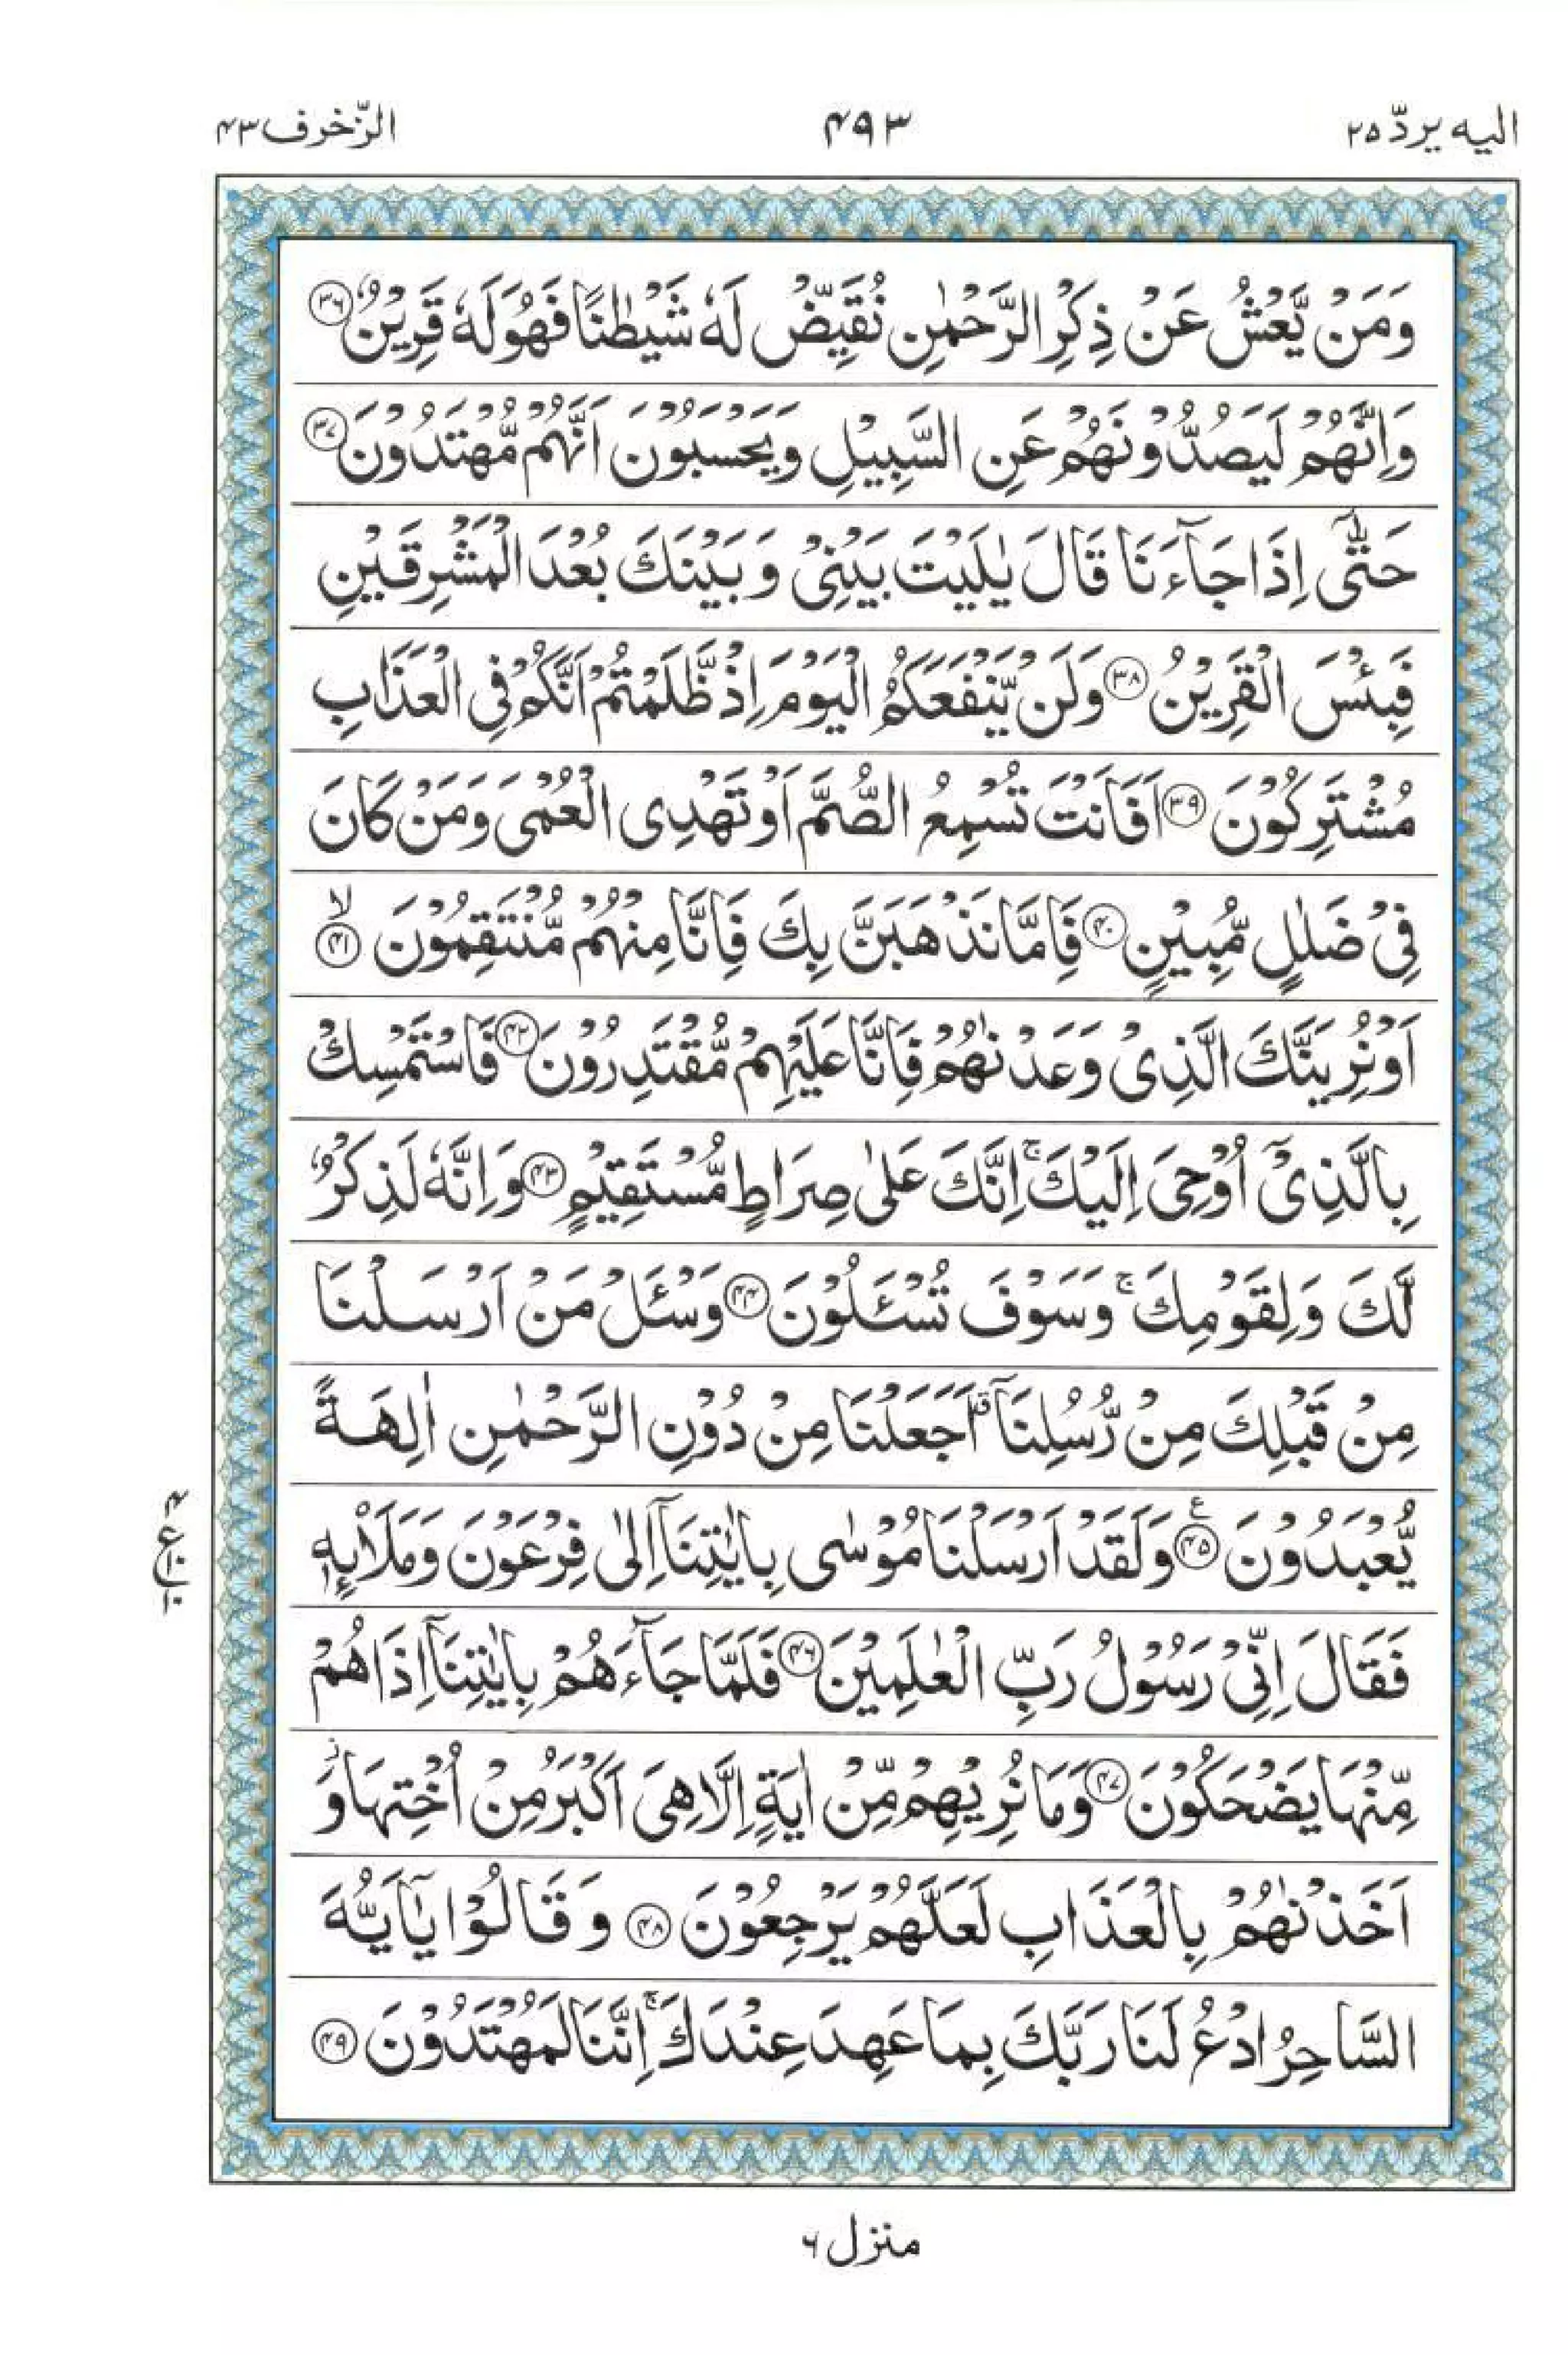 الیه یردّ ۲۵
۴۹۳
الزّخرف ۴۳
وَمَنْ یَّعْشُ عَنْ ذِكْرِ الرَّحْمٰنِ نُقَیِّضْ لَهٗ شَیْطٰنًا فَهُوَ لَهٗ قَرِیْنٌ ۳۶
وَاِنَّهُمْ لَیَصُدُّوْنَهُمْ عَنِ السَّبِیْلِ وَیَحْسَبُوْنَ اَنَّهُمْ مُّهْتَدُوْنَ ۳۷
حَتّٰۤی اِذَا جَآءَنَا قَالَ یٰلَیْتَ بَیْنِیْ وَبَیْنَكَ بُعْدَ الْمَشْرِقَیْنِ
فَبِئْسَ الْقَرِیْنُ ۳۸ وَلَنْ یَّنْفَعَكُمُ الْیَوْمَ اِذْ ظَّلَمْتُمْ اَنَّكُمْ فِی الْعَذَابِ
مُشْتَرِكُوْنَ ۳۹ اَفَاَنْتَ تُسْمِعُ الصُّمَّ اَوْ تَهْدِی الْعُمْیَ وَمَنْ كَانَ
فِیْ ضَلٰلٍ مُّبِیْنٍ ۴۰ فَاِمَّا نَذْهَبَنَّ بِكَ فَاِنَّا مِنْهُمْ مُّنْتَقِمُوْنَ لا ۴۱
اَوْ نُرِیَنَّكَ الَّذِیْ وَعَدْنٰهُمْ فَاِنَّا عَلَیْهِمْ مُّقْتَدِرُوْنَ ۴۲ فَاسْتَمْسِكْ
بِالَّذِیْۤ اُوْحِیَ اِلَیْكَ ۚ اِنَّكَ عَلٰی صِرَاطٍ مُّسْتَقِیْمٍ ۴۳ وَاِنَّهٗ لَذِكْرٌ
لَّكَ وَلِقَوْمِكَ ۚ وَسَوْفَ تُسْـَٔلُوْنَ ۴۴ وَسْـَٔلْ مَنْ اَرْسَلْنَا
مِنْ قَبْلِكَ مِنْ رُّسُلِنَاۤ اَجَعَلْنَا مِنْ دُوْنِ الرَّحْمٰنِ اٰلِهَةً
یُّعْبَدُوْنَ ۴۵ ع وَلَقَدْ اَرْسَلْنَا مُوْسٰی بِاٰیٰتِنَاۤ اِلٰی فِرْعَوْنَ وَمَلَاۡئِهٖ
فَقَالَ اِنِّیْ رَسُوْلُ رَبِّ الْعٰلَمِیْنَ ۴۶ فَلَمَّا جَآءَهُمْ بِاٰیٰتِنَاۤ اِذَا هُمْ
مِّنْهَا یَضْحَكُوْنَ ۴۷ وَمَا نُرِیْهِمْ مِّنْ اٰیَةٍ اِلَّا هِیَ اَكْبَرُ مِنْ اُخْتِهَا ؗ وَ
اَخَذْنٰهُمْ بِالْعَذَابِ لَعَلَّهُمْ یَرْجِعُوْنَ ۴۸ وَقَالُوْا یٰۤاَیُّهَ
السَّاحِرُ ادْعُ لَنَا رَبَّكَ بِمَا عَهِدَ عِنْدَكَ ۚ اِنَّنَا لَمُهْتَدُوْنَ ۴۹
منزل ۶